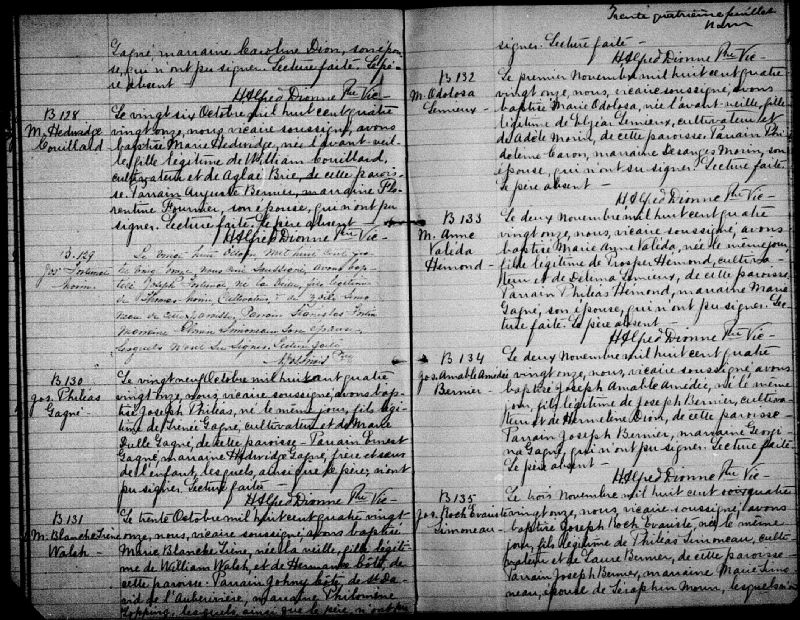 Gagné, marraine Caroline Dion, son épou-
se, qui n'ont pu signer. Lecture faite. Le pè-
re absent
H Alfred Dionne Ptre Vic-
B 128
M. Hedwidge
Couillard
Le vingt six Octobre mil huit cent quatre
vingt onze, nous, vicaire soussigné, avons
baptisé Marie Hedwidge, née l'avant-veil-
le, fille légitime de William Couillard,
cultivateur et de Aglaé Brie, de cette parois-
se. Parrain Auguste Bernier, marraine Flo-
rentine Fournier, son épouse, qui n'ont pu
signer. Lecture faite. Le père absent
H Alfred Dionne Ptre Vic-
B. 129
Jos. Fortunat
Morin.
Le vingt huit Octobre mil huit cent qua-
tre vingt onze, nous curé soussigné, avons bap-
tisé Joseph Fortunat né la veille, fils légitime
de Thomas Morin, Cultivateur, & de
de cette paroisse, Parrain Stanislas
marraine Simoneau son épouse
lesquels n'ont su signer. Lecture faite
Ptre
B 130
Jos. Philéas
Gagné
Le vingt neuf Octobre mil huit cent quatre
vingt onze, nous, vicaire soussigné, avons bap-
tisé Joseph Philéas, né le même jour, fils légi-
time de Irénée Gagné, cultivateur et de Marie
Julle Gagné, de cette paroisse- Parrain Ernest
Gagné, marraine Hedwidge Gagné, frère et sœur
de l'enfant, lesquels, ainsi que le père, n'ont
pu signer. Lecture faite-
H Alfred Dionne Ptre Vic-
B 131
M. Blanche Irène
Walsh-
Le trente Octobre mil huit cent quatre vingt
onze, nous, vicaire soussigné, avons baptisé
Marie Blanche Irène, née la veille, fille légiti-
me de William Walsh, et de Hermance Côté, de
cette paroisse. Parrain Johny Côté, de St Da-
vid de l'Auberivière, marraine Philomène
Topping, lesquels ainsi que le père, n'ont pu
Trente quatrième feuillet
signer. Lecture faite-
H Alfred Dionne Ptre Vic-
B 132
M. Odolosa
Lemieux-
Le premier Novembre mil huit cent quatre
vingt onze, nous, vicaire soussigné, avons
baptisé Marie Odolosa, née l'avant-veille, fille
légitime de Elzéar Lemieux, cultivateur et
de Adèle Morin, de cette paroisse. Parrain
Caron, marraine Desanges Morin, son
épouse, qui n'ont pu signer. Lecture faite.
Le père absent-
H Alfred Dionne Ptre Vic-
B 133
M. Anne
Valida
Hémond-
Le deux Novembre mil huit cent quatre
vingt onze, nous, vicaire soussigné, avons
baptisé Marie Anne Valida, née le même jour,
fille légitime de Prosper Hémond, cultiva-
teur et de Delima Lemieux, de cette paroisse.
Parrain Philéas Hémond, marraine Marie
Gagné, son épouse, qui n'ont pu signer. Lec-
ture faite. Le père absent-
H Alfred Dionne Ptre Vic-
B 134
Jos. Amable Amédée
Bernier-
Le deux Novembre mil huit cent quatre
vingt onze, nous, vicaire soussigné, avons
baptisé Joseph Amable Amédée, né le même
jour, fils légitime de Joseph Bernier, cultiva-
teur et de Hermeline Dion, de cette paroisse-
Parrain Joseph Bernier, marraine Georgi-
na Gagné, qui n'ont pu signer. Lecture faite
Le père absent-
H Alfred Dionne Ptre Vic-
B 135
Jos. Roch Évariste
Simoneau-
Le trois Novembre mil huit cent quatre
vingt onze, nous, vicaire soussigné, avons
baptisé Joseph Roch Évariste, né le même
jour, fils légitime de Philéas Simoneau, culti-
vateur et de Laure Bernier, de cette paroisse-
Parrain Joseph Bernier, marraine Marie Simo-
neau, épouse de Séraphin Morin, lesquels